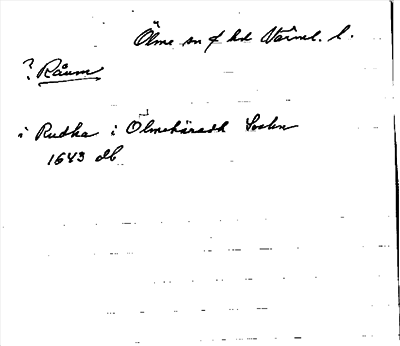 Ölme sn o hd Värml. l.
? Råum
i Rudka i Ölmehäradh Sockn
1643 db